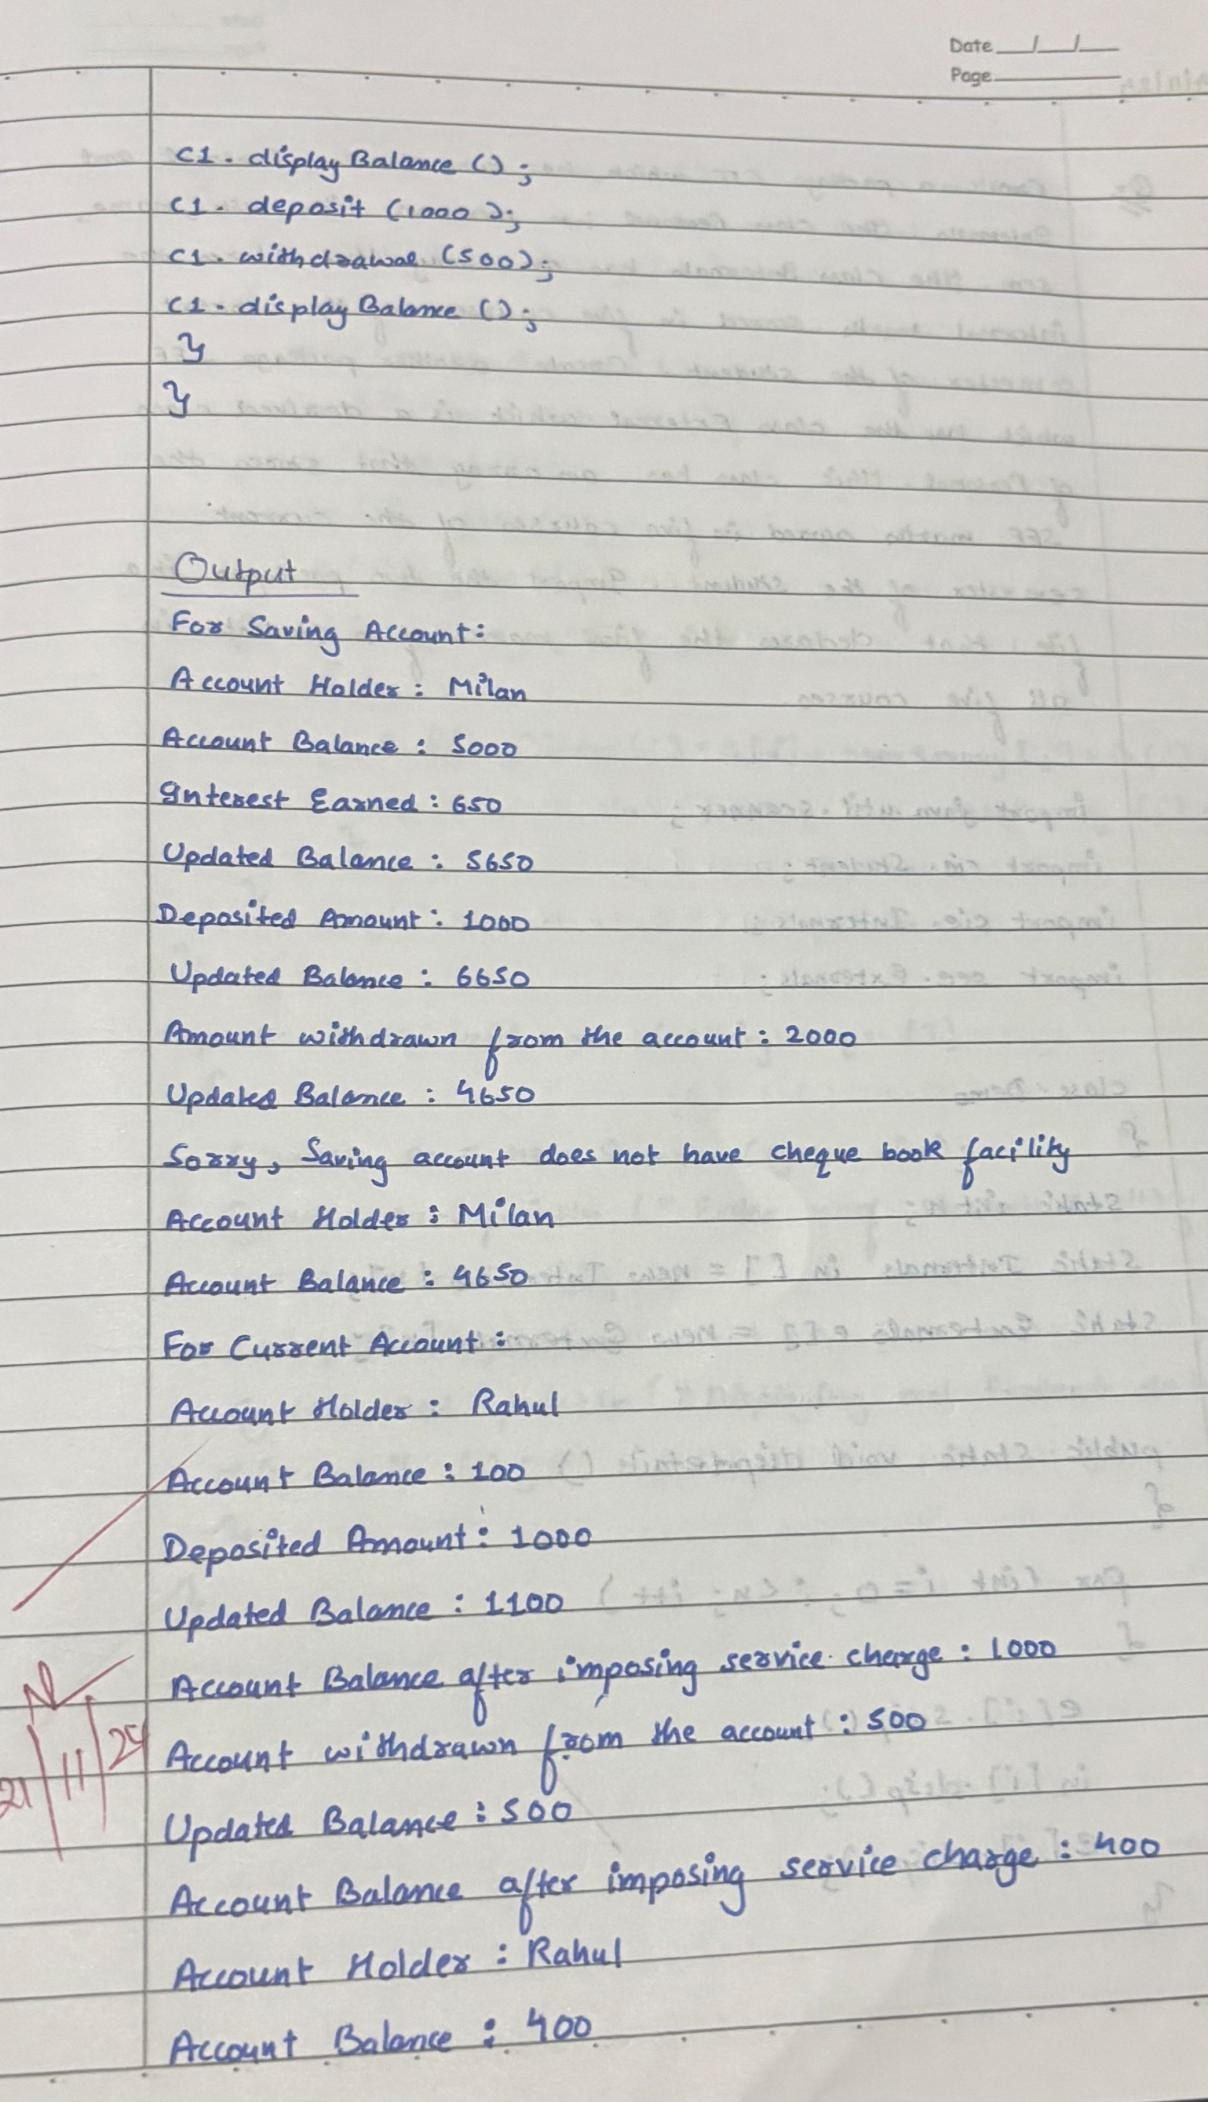 Date __/__/__
Page
C1. display Balance ();
C1. deposit (1000);
C1. withdrawal (500);
C1. display Balance ();
}
}
Output
For Saving Account:
Account Holder: Milan
Account Balance: 5000
Interest Earned: 650
Updated Balance: 5650
Deposited Amount: 1000
Updated Balance: 6650
Amount withdrawn from the account: 2000
Updated Balance: 4650
Sorry, Saving account does not have cheque book facility
Account Holder: Milan
Account Balance: 4650
For Current Account:
Account Holder: Rahul
Account Balance: 100
Deposited Amount: 1000
Updated Balance: 1100
Account Balance after imposing service charge: 1000
Account withdrawn from the account: 500
Updated Balance: 500
Account Balance after imposing service charge: 400
Account Holder: Rahul
Account Balance: 400
21/11/24